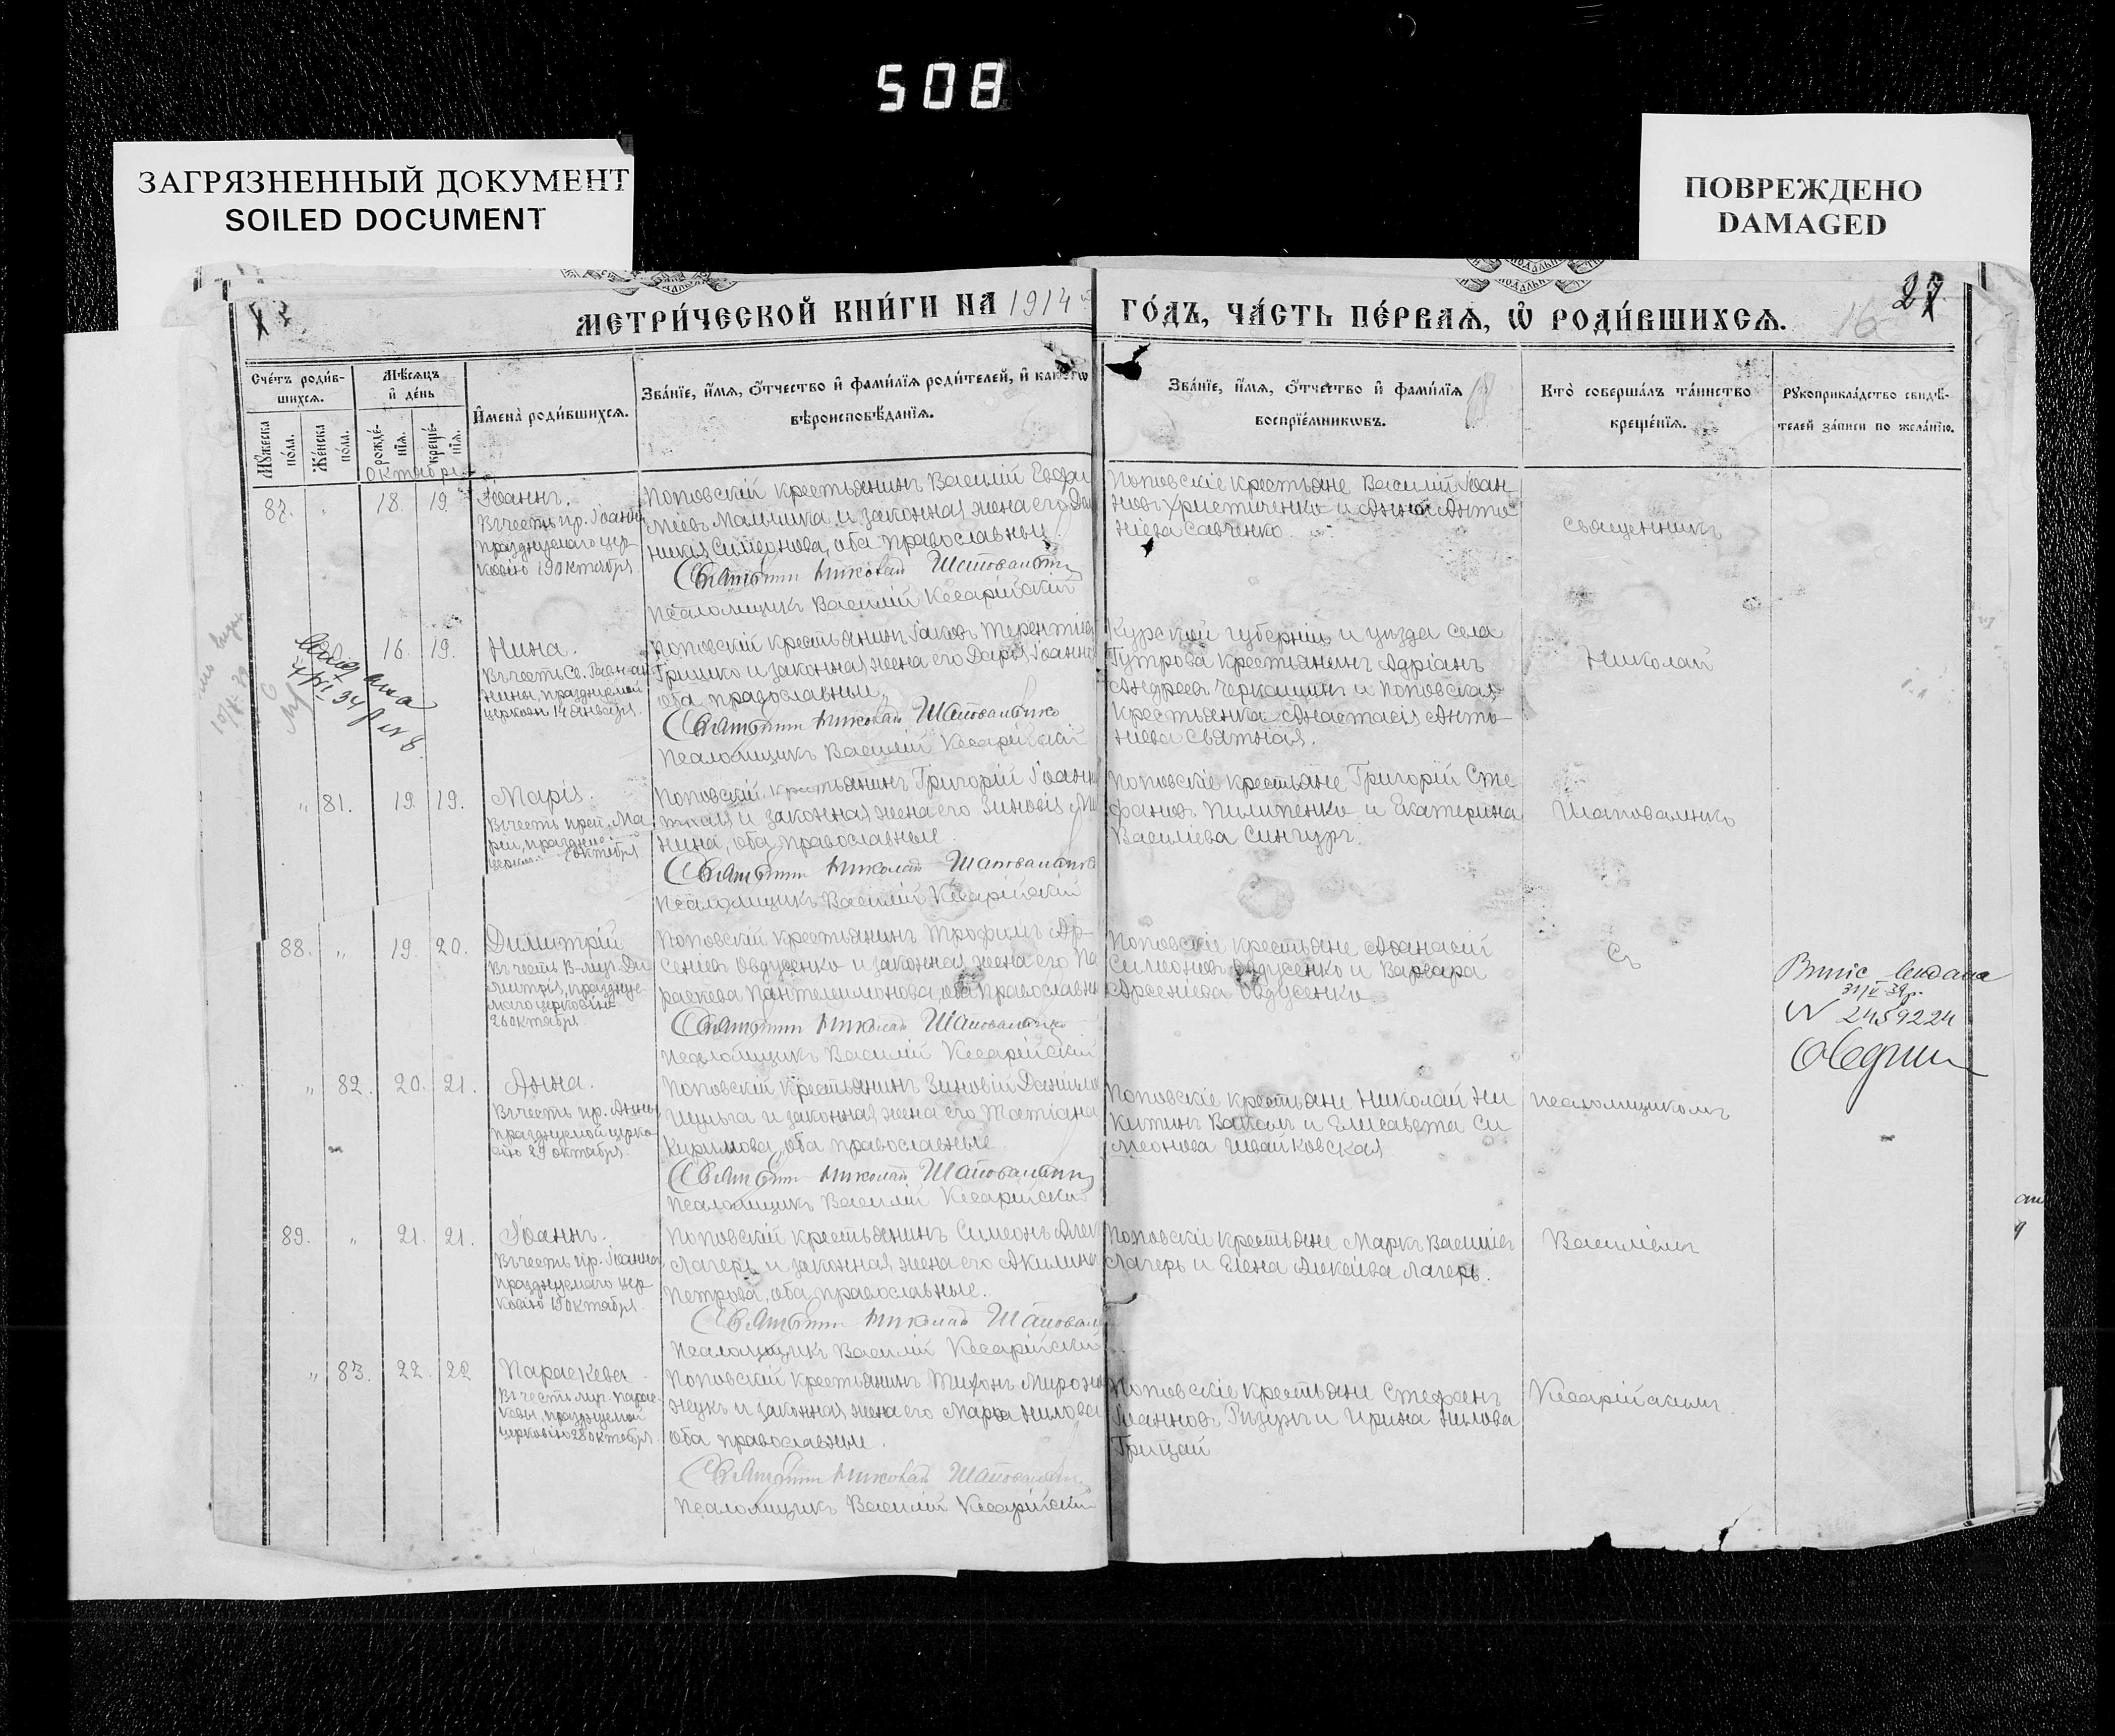 508
ЗАГРЯЗНЕННЫЙ ДОКУМЕНТ
SOILED DOCUMENT
ПОВРЕЖДЕНО
DAMAGED
МЕТРИ́ЧЕСКОЙ КНИ́ГИ НА 1914
ГО́ДЪ, ЧА́СТЬ ПЕ́РВАѦ, Ѡ РОДИ́ВШИХСѦ.
16 27
Сче́тъ роди́в-
шихсѧ.
Мꙋжеска по́ла.
Же́нска по́ла.
Мѣ́сѧцъ
и де́нь
рожде́-
нїѧ.
креще́-
нїѧ.
Имена̀ роди́вшихсѧ.
Зва́нїе, и́мѧ, о́тчество и фами́лїѧ роди́телей, и како́гѡ
вѣроисповѣ́данїѧ.
Зва́нїе, и́мѧ, о́тчество и фами́лїѧ
воспрїе́мникѡвъ.
Кто̀ соверша́лъ та́инство
креще́нїѧ.
Рꙋкоприкла́дство свидѣ́-
телей за́писи по жела́нїю.
Октябрь
87. " 18. 19. Іоаннъ.
Въ честь пр. Іоанна
празднуемаго цер-
ковію 19 октября
Поповскій крестьянинъ Василій Евфи
міевъ Малышка и законная жена его
Симеонова, оба православные.
Николай Шаповаленко
Псаломщикъ Василій Кесарійскій
Поповскіе крестьяне Василій Іоан-
новъ Христиченко и Анна Анто
ніева Савченко.
Священникъ
16. 19. Нина.
Въ честь Св. Равноап
Нины, празднуемой
церковію 14 января.
Поповскій крестьянинъ Іаковъ Терентіев
Гришко и законная жена его Дарія Іоанн
оба православные.
Николай Шаповаленко
Псаломщикъ Василій Кесарійскій
Курской губерніи и уѣзда села
крестьянинъ Адріанъ
Андреевъ Черкашинъ и поповская
крестьянка Анастасія Анто-
ніева Святная.
Николай
" 81. 19. 19. Марія.
Въ честь преп. Ма
ріи, праздне
октября
Поповскій крестьянинъ Григорій Іоанн
и законная жена его Зиновія
нина, оба православные.
Николай Шаповаленко
Псаломщикъ Василій Кесарійскій
Поповскіе крестьяне Григорій Сте
фановъ Пилипенко и Екатерина
Василіева Сингуръ.
Шаповаленко
88. " 19. 20. Димитрій
Въ честь В-муч. Ди
митрія, праздную-
маго церковію
26 октября
Поповскій крестьянинъ Трофимъ Ар-
сеніевъ Овдуенко и законная жена его Па
раскева Пантелеимонова, оба православные
Николай Шаповаленко
Псаломщикъ Василій Кесарійскій
Поповскіе крестьяне Аѳанасій
Симеоновъ Овдуенко и Варвара
Арсеніева Овдуенко.
Съ
31/V 39р.
N 2459224
" 82. 20. 21. Анна.
Въ честь пр. Анны
празднуемой церко-
вію 29 октября.
Поповскій крестьянинъ Зиновій Даніило
и законная жена его Татіана
Кириллова, оба православные
Николай Шаповаленко
Псаломщикъ Василій Кесарійскій
Поповскіе крестьяне Николай Ни
китинъ и Елисавета Си
меонова Швайковская
псаломщикомъ
89. " 21. 21. Іоаннъ.
Въ честь пр. Іоанна
празднуемаго цер
ковію 19 октября.
Поповскій крестьянинъ Симеонъ Алек
Лагеръ и законная жена его Акилина
Петрова, оба православные.
Николай Шаповал
Псаломщикъ Василій Кесарійскій
Поповскіе крестьяне Маркъ Василіевъ
Лагеръ и Елена Алексіева Лагеръ.
Василіемъ
" 83. 22. 22. Параскева.
Въ честь муч. Парас-
кевы, празднуемой
церковію 28 октября.
Поповскій крестьянинъ Тихонъ Мироно
и законная жена его Марѳа Нилова
оба православные.
Николай Шаповаленко
Псаломщикъ Василій Кесарійскій
Поповскіе крестьяне Стефанъ
Іоанновъ Ризунъ и Ирина Нилова
Грицай
Кесарійскимъ